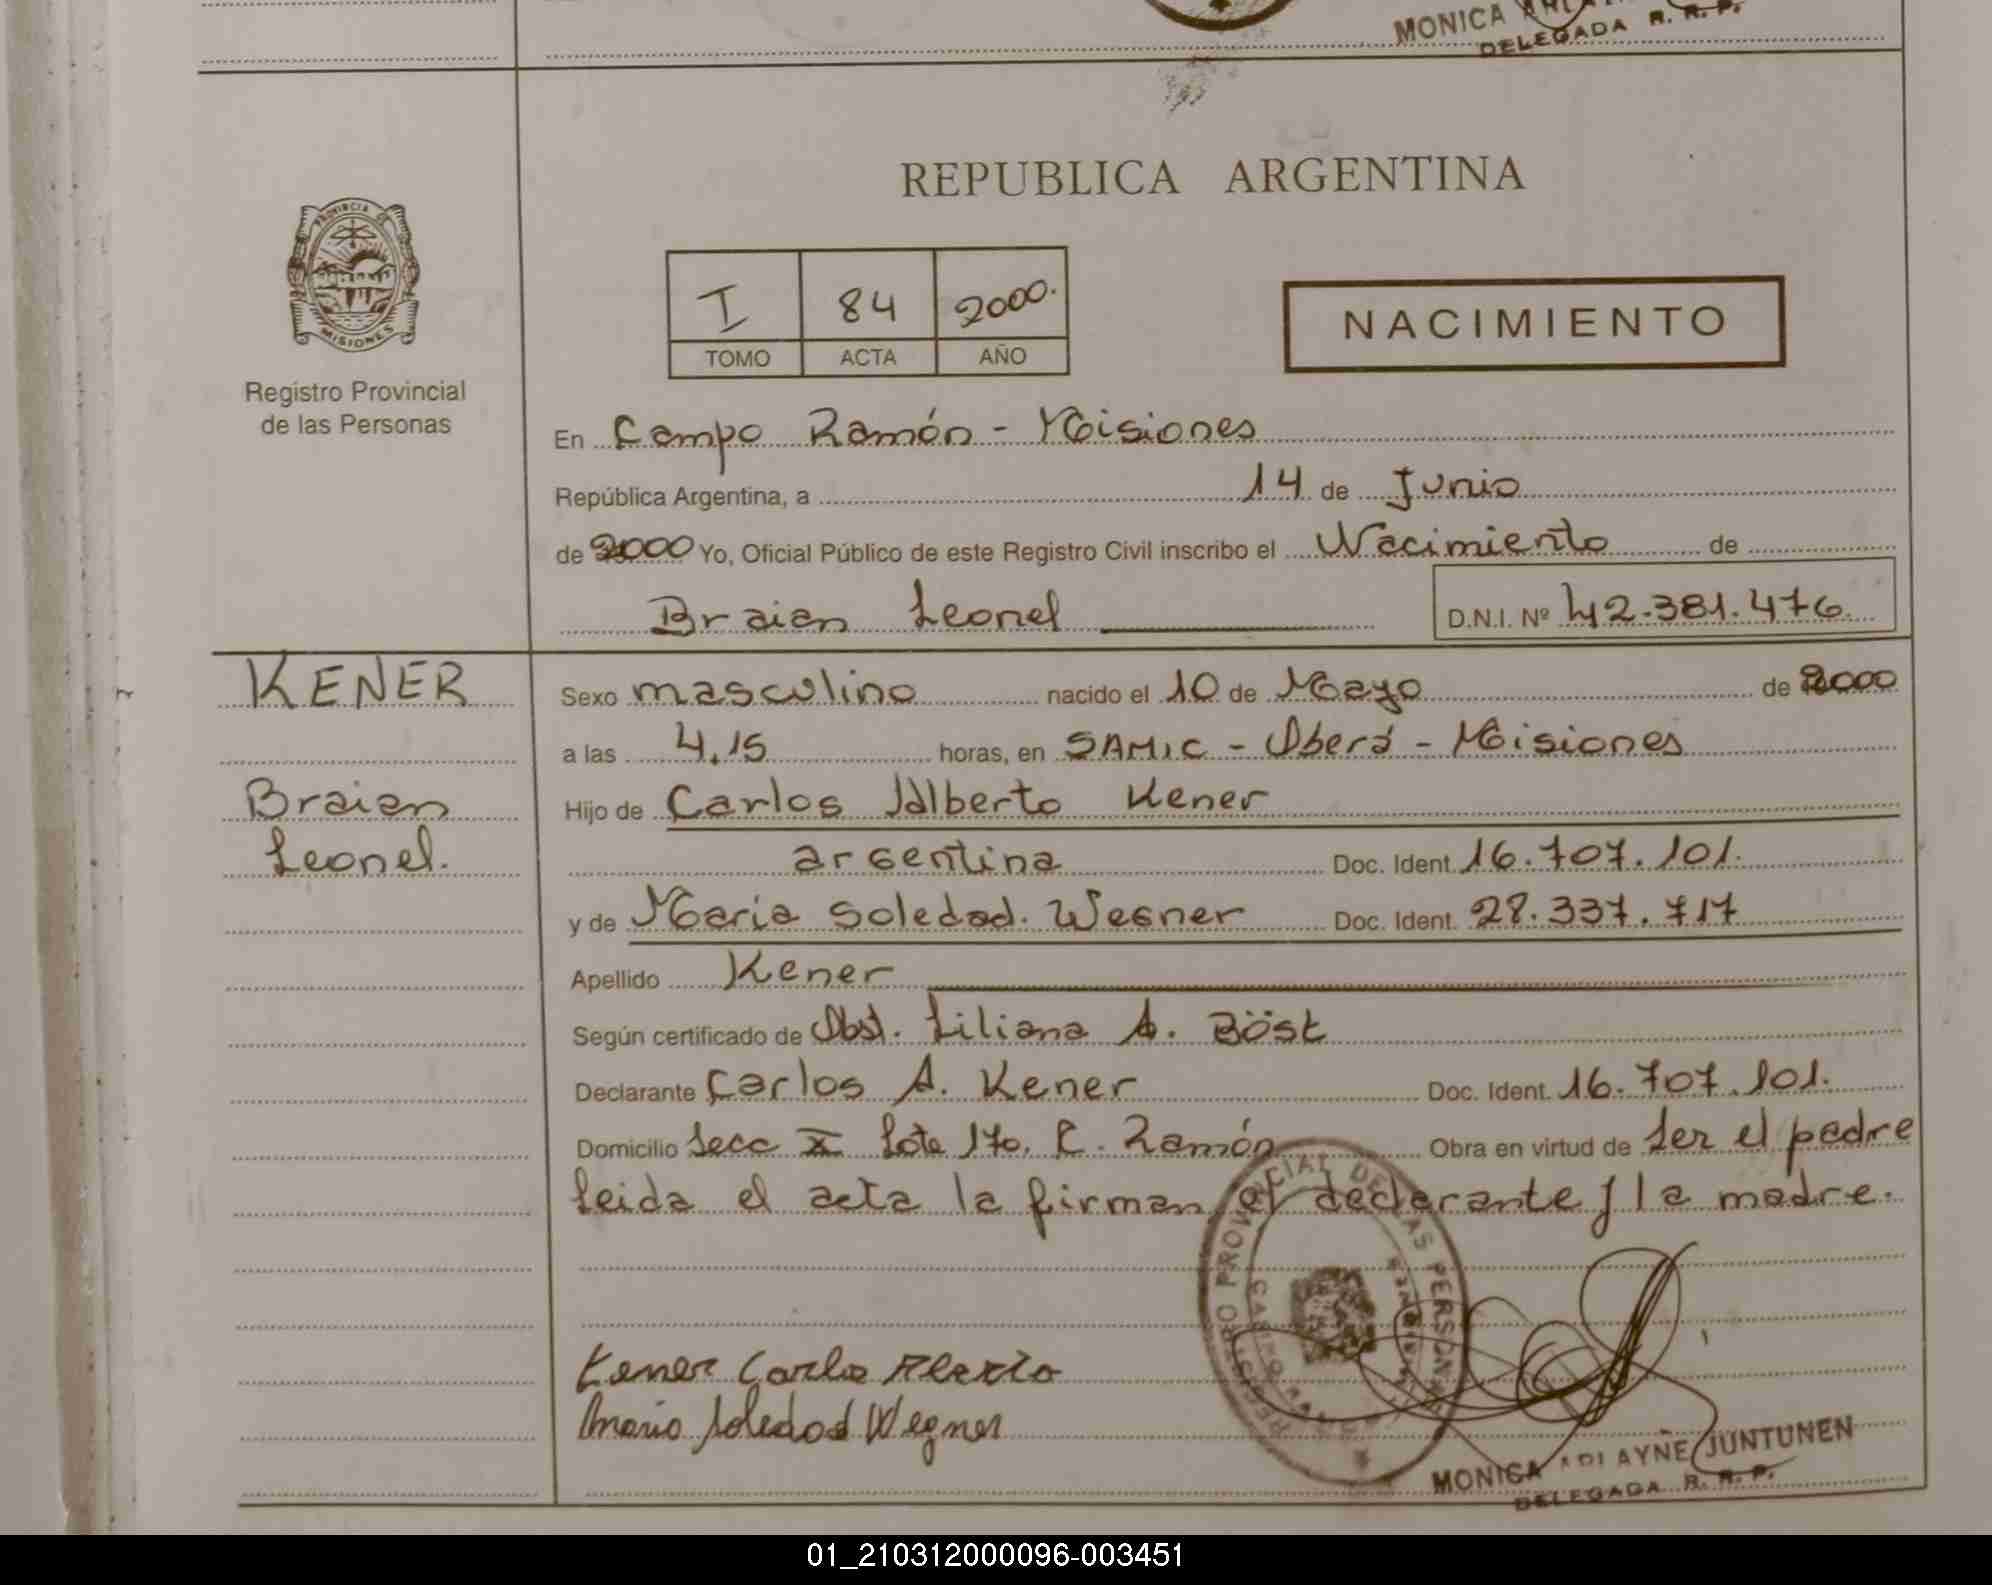 MONICA
DELEGADA R. R. P.
REPUBLICA ARGENTINA
PROVINCIA DE
MISIONES
Registro Provincial
de las Personas
I 84 2000.
TOMO ACTA AÑO
NACIMIENTO
En Campo Ramón - Misiones
República Argentina, a 14 de Junio
de 2000 Yo, Oficial Público de este Registro Civil inscribo el Nacimiento de
Braian Leonel D.N.I. Nº 42.381.476.
KENER
Braian
Leonel.
Sexo masculino nacido el 10 de Mayo de 2000
a las 4.15 horas, en SAMIC - Oberá - Misiones
Hijo de Carlos Alberto Kener
argentina Doc. Ident. 16.707.101.
y de María Soledad. Wegner Doc. Ident. 28.337.717
Apellido Kener
Según certificado de Obst. Liliana A. Böst
Declarante Carlos A. Kener Doc. Ident. 16.707.101.
Domicilio Secc X Lote 170. C. Ramón Obra en virtud de ser el padre
Leida el acta la firman el declarante y la madre.
REGISTRO PROVINCIAL DE LAS PERSONAS
Kener Carlos Alberto
Maria Soledad Wegner
MONICA ARLAYNE JUNTUNEN
DELEGADA R. R. P.
01_210312000096-003451